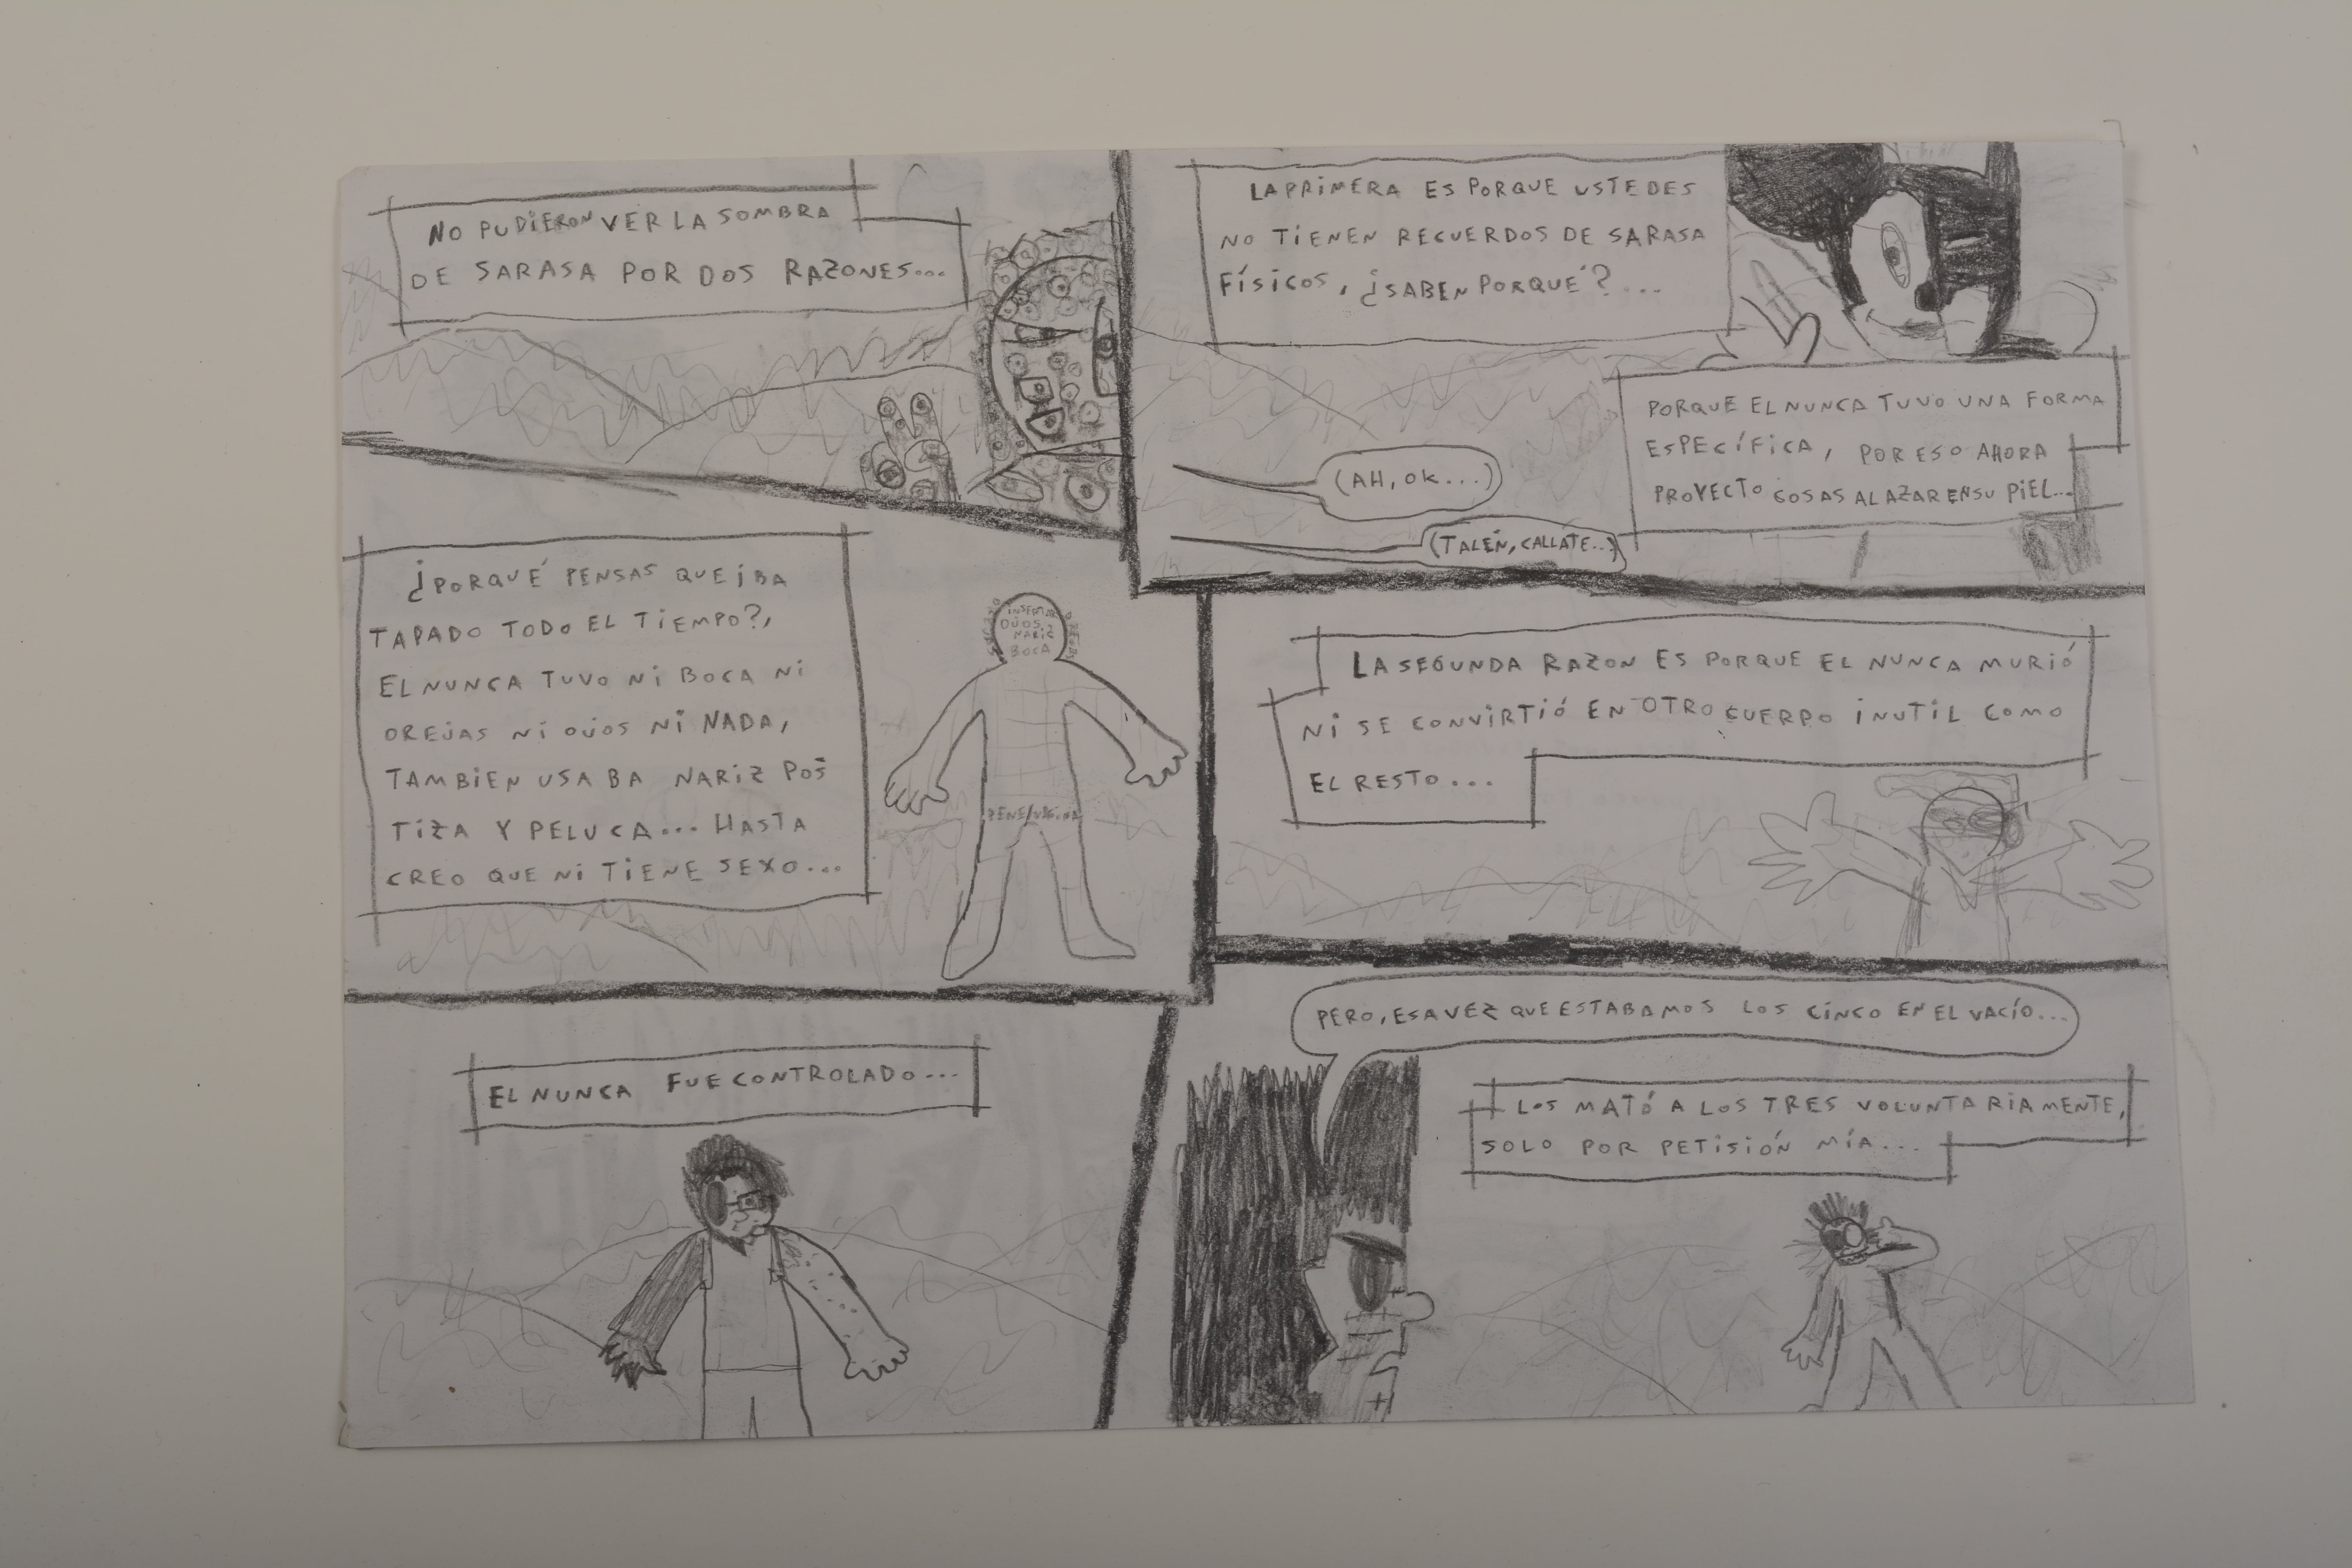 NO PUDIERON VER LA SOMBRA
DE SARASA POR DOS RAZONES...
LA PRIMERA ES PORQUE USTEDES
NO TIENEN RECUERDOS DE SARASA
FÍSICOS, ¿SABEN PORQUÉ? ...
PORQUE EL NUNCA TUVO UNA FORMA
ESPECÍFICA, POR ESO AHORA
PROYECTO COSAS AL AZAR EN SU PIEL...
(AH, OK...)
(TALÉN, CALLATE...)
¿PORQUÉ PENSAS QUE IBA
TAPADO TODO EL TIEMPO?,
EL NUNCA TUVO NI BOCA NI
OREJAS NI OJOS NI NADA,
TAMBIEN USABA NARIZ POS
TIZA Y PELUCA... HASTA
CREO QUE NI TIENE SEXO...
INSERTAR
OJOS,
NARIZ
BOCA
PENE/VAGINA
LA SEGUNDA RAZON ES PORQUE EL NUNCA MURIÓ
NI SE CONVIRTIÓ EN OTRO CUERPO INUTIL COMO
EL RESTO...
EL NUNCA FUE CONTROLADO...
PERO, ESA VEZ QUE ESTABAMOS LOS CINCO EN EL VACÍO...
LOS MATÓ A LOS TRES VOLUNTARIAMENTE,
SOLO POR PETISIÓN MÍA...